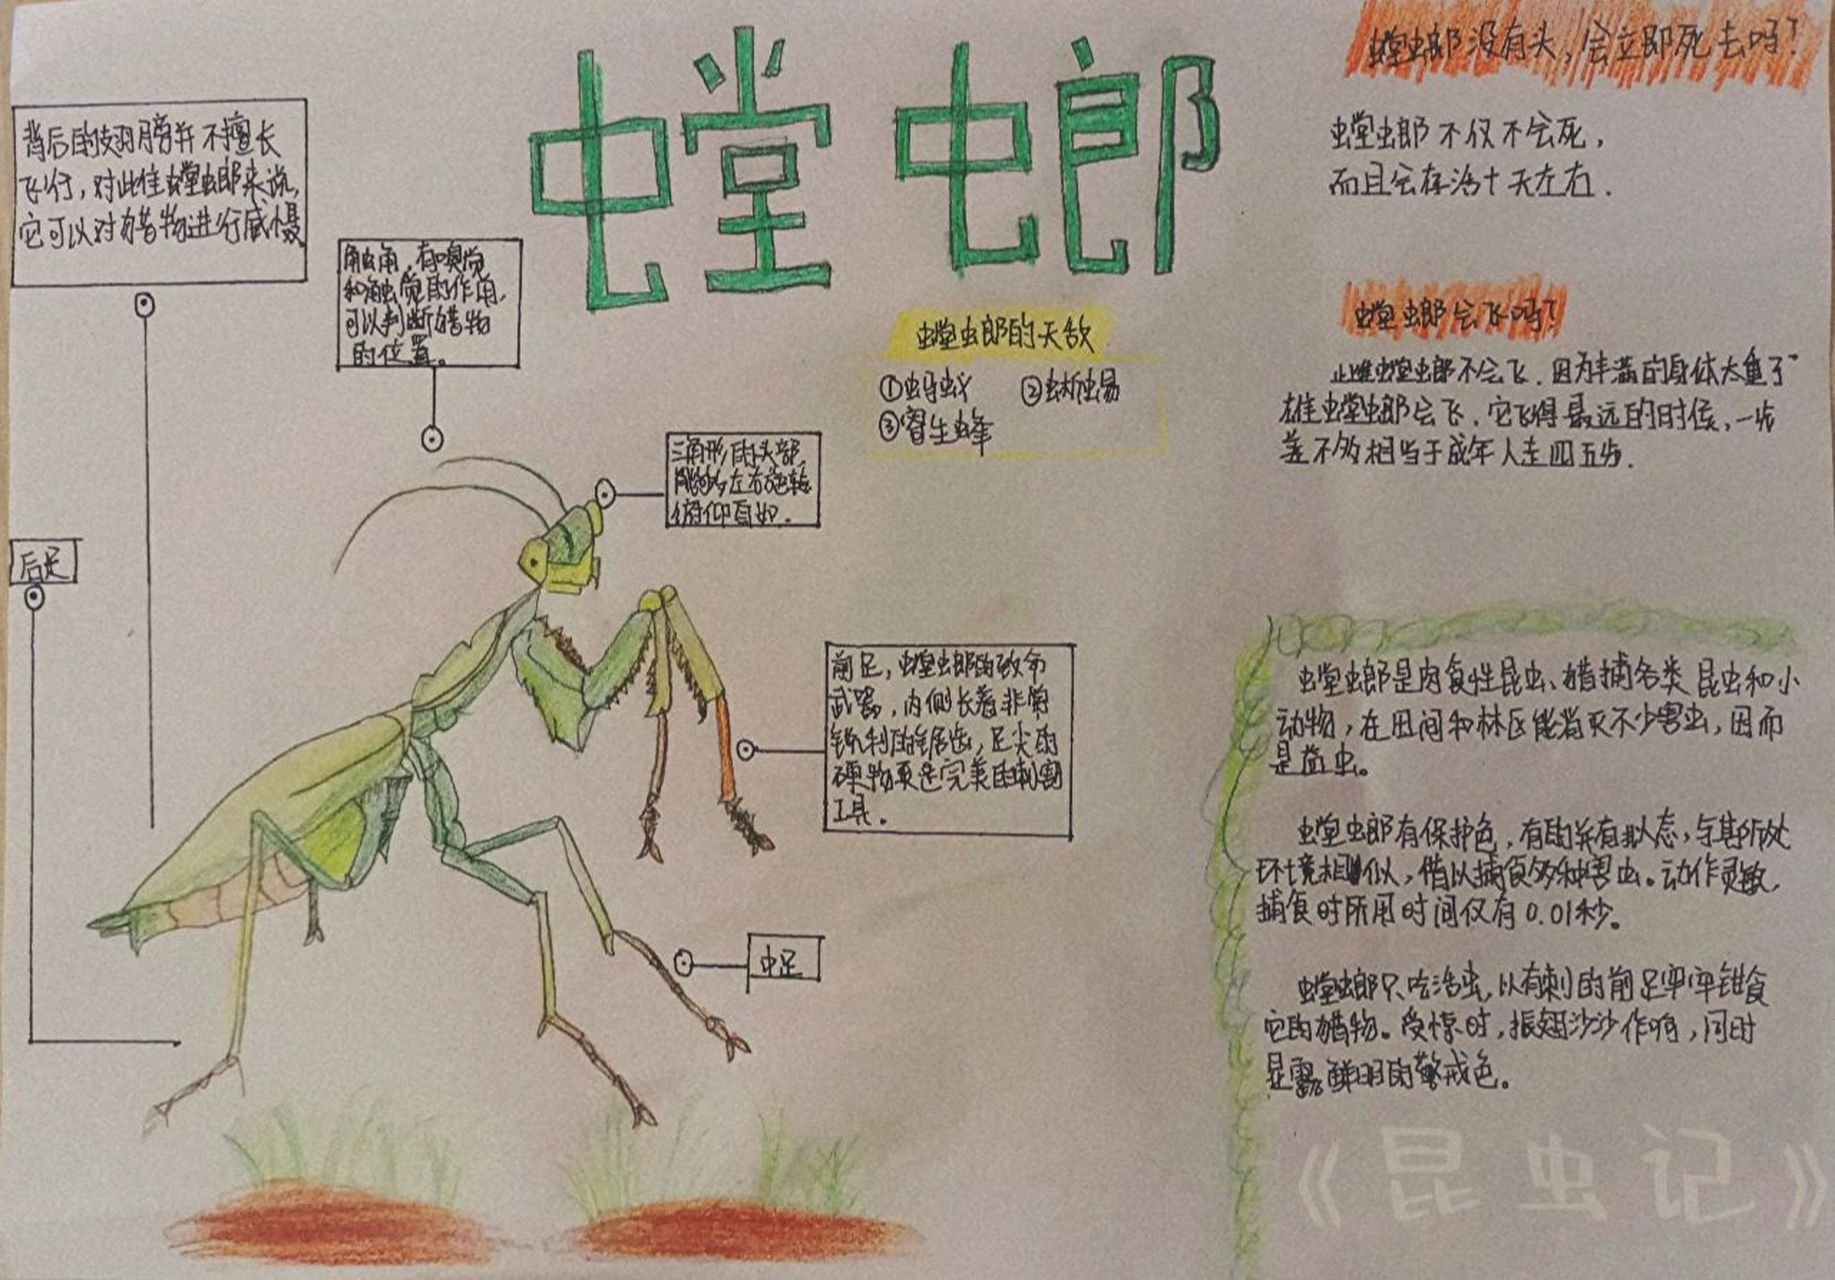 螳螂
背后的翅膀并不擅长
飞行，对此雌螳螂来说，
它可以对猎物进行威慑
触角，有嗅觉
和触觉的作用，
可以判断猎物
的位置。
三角形的头部，
能够左右旋转
俯仰自如．
后足
前足，螳螂的致命
武器，内侧长着非常
锐利的锯齿，足尖的
硬物更是完美的切割
工具。
中足
螳螂的天敌
①蚂蚁 ②蜥蜴
③寄生蜂
螳螂没有头，会立即死去吗？
螳螂不仅不会死，
而且会存活十天左右．
螳螂会飞吗？
雌螳螂不会飞．因为丰满的身体太重了
雄螳螂会飞．它飞得最远的时候，一步
差不多相当于成年人走四五步．
螳螂是肉食性昆虫、猎捕各类昆虫和小
动物，在田间和林区能消灭不少害虫，因而
是益虫。
螳螂有保护色，有的并有拟态，与其所处
环境相似，借以捕食多种害虫。动作灵敏，
捕食时所用时间仅有0.01秒。
螳螂只吃活虫，以有刺的前足牢牢钳食
它的猎物。受惊时，振翅沙沙作响，同时
显露鲜明的警戒色。
《昆虫记》